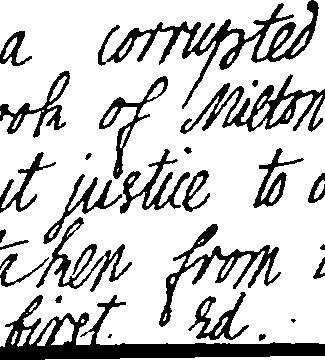 a corrupted
ook of Milton
ut justice to
taken from
first. Ed.